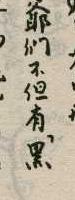 爺們不但有「黑